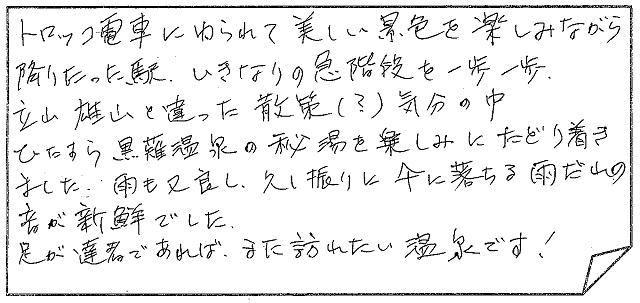 トロッコ電車にゆられて美しい景色を楽しみながら
降りたった駅.いきなりの急階段を一歩一歩.
立山 雄山と違った散策(?)気分の中
ひたすら黒薙温泉の秘湯を楽しみにたどり着き
ました.雨も又良し.久し振りに 傘に落ちる雨だれの
音が新鮮でした.
足が達者であれば.また訪れたい温泉です!